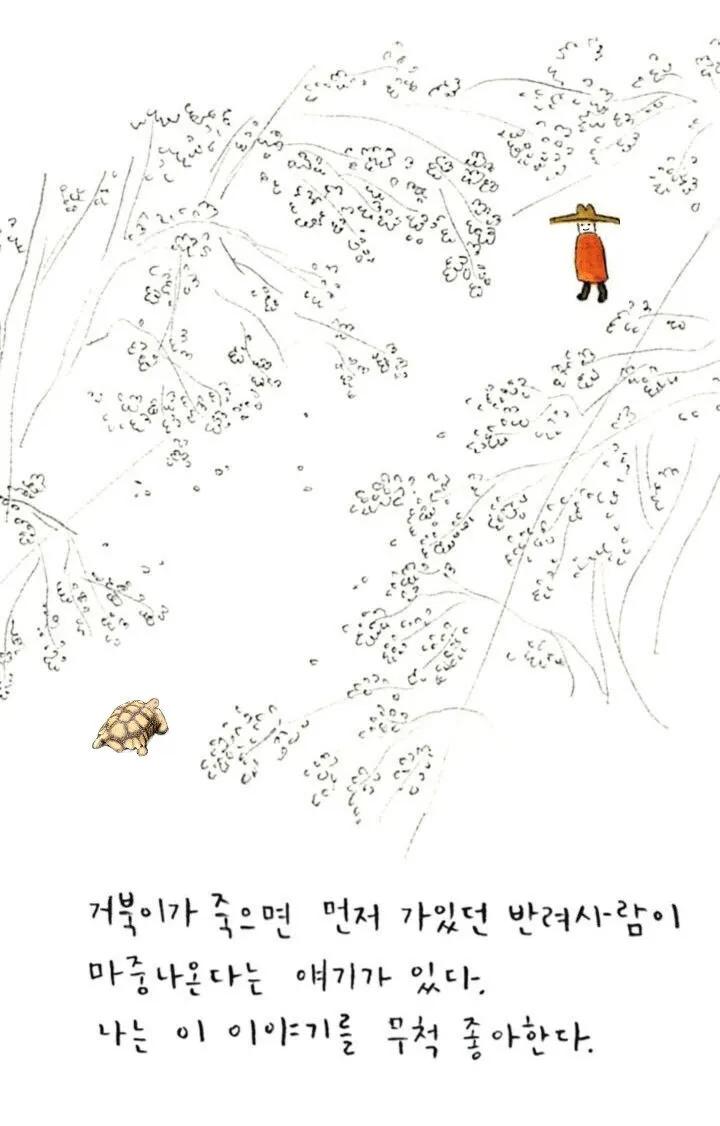 거북이가 죽으면 먼저 가있던 반려사람이
마중나온다는 얘기가 있다.
나는 이 이야기를 무척 좋아한다.